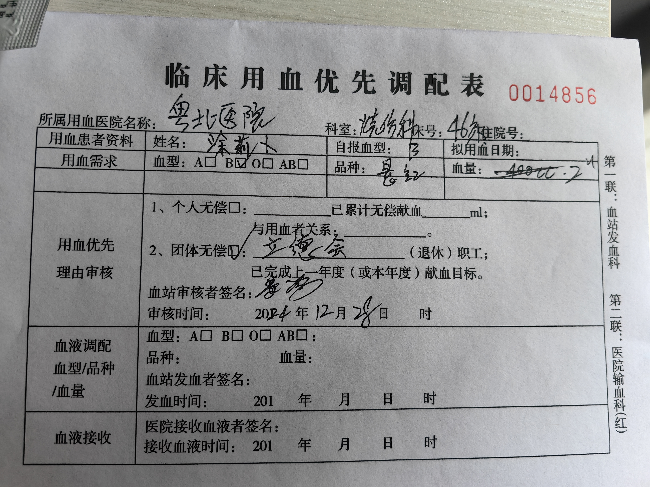 临床用血优先调配表
0014856
所属用血医院名称：粤北医院 科室：烧伤科 床号：46床 住院号：
用血患者资料 姓名： 自报血型：B 拟用血日期：
用血需求 血型：A□ B☑ O□ AB□ 品种：悬红 血量：400cc. 2u
用血优先理由审核
1、个人无偿□：____已累计无偿献血____ml；
与用血者关系：____。
2、团体无偿☑：立德会（退休）职工；
已完成上一年度（或本年度）献血目标。
血站审核者签名：
审核时间：2024年12月28日 时
血液调配血型/品种/血量
血型：A□ B□ O□ AB□；
品种： 血量：
血站发血者签名：
发血时间：201 年 月 日 时
血液接收
医院接收血液者签名：
接收血液时间：201 年 月 日 时
第一联：血站发血科 第二联：医院输血科(红)